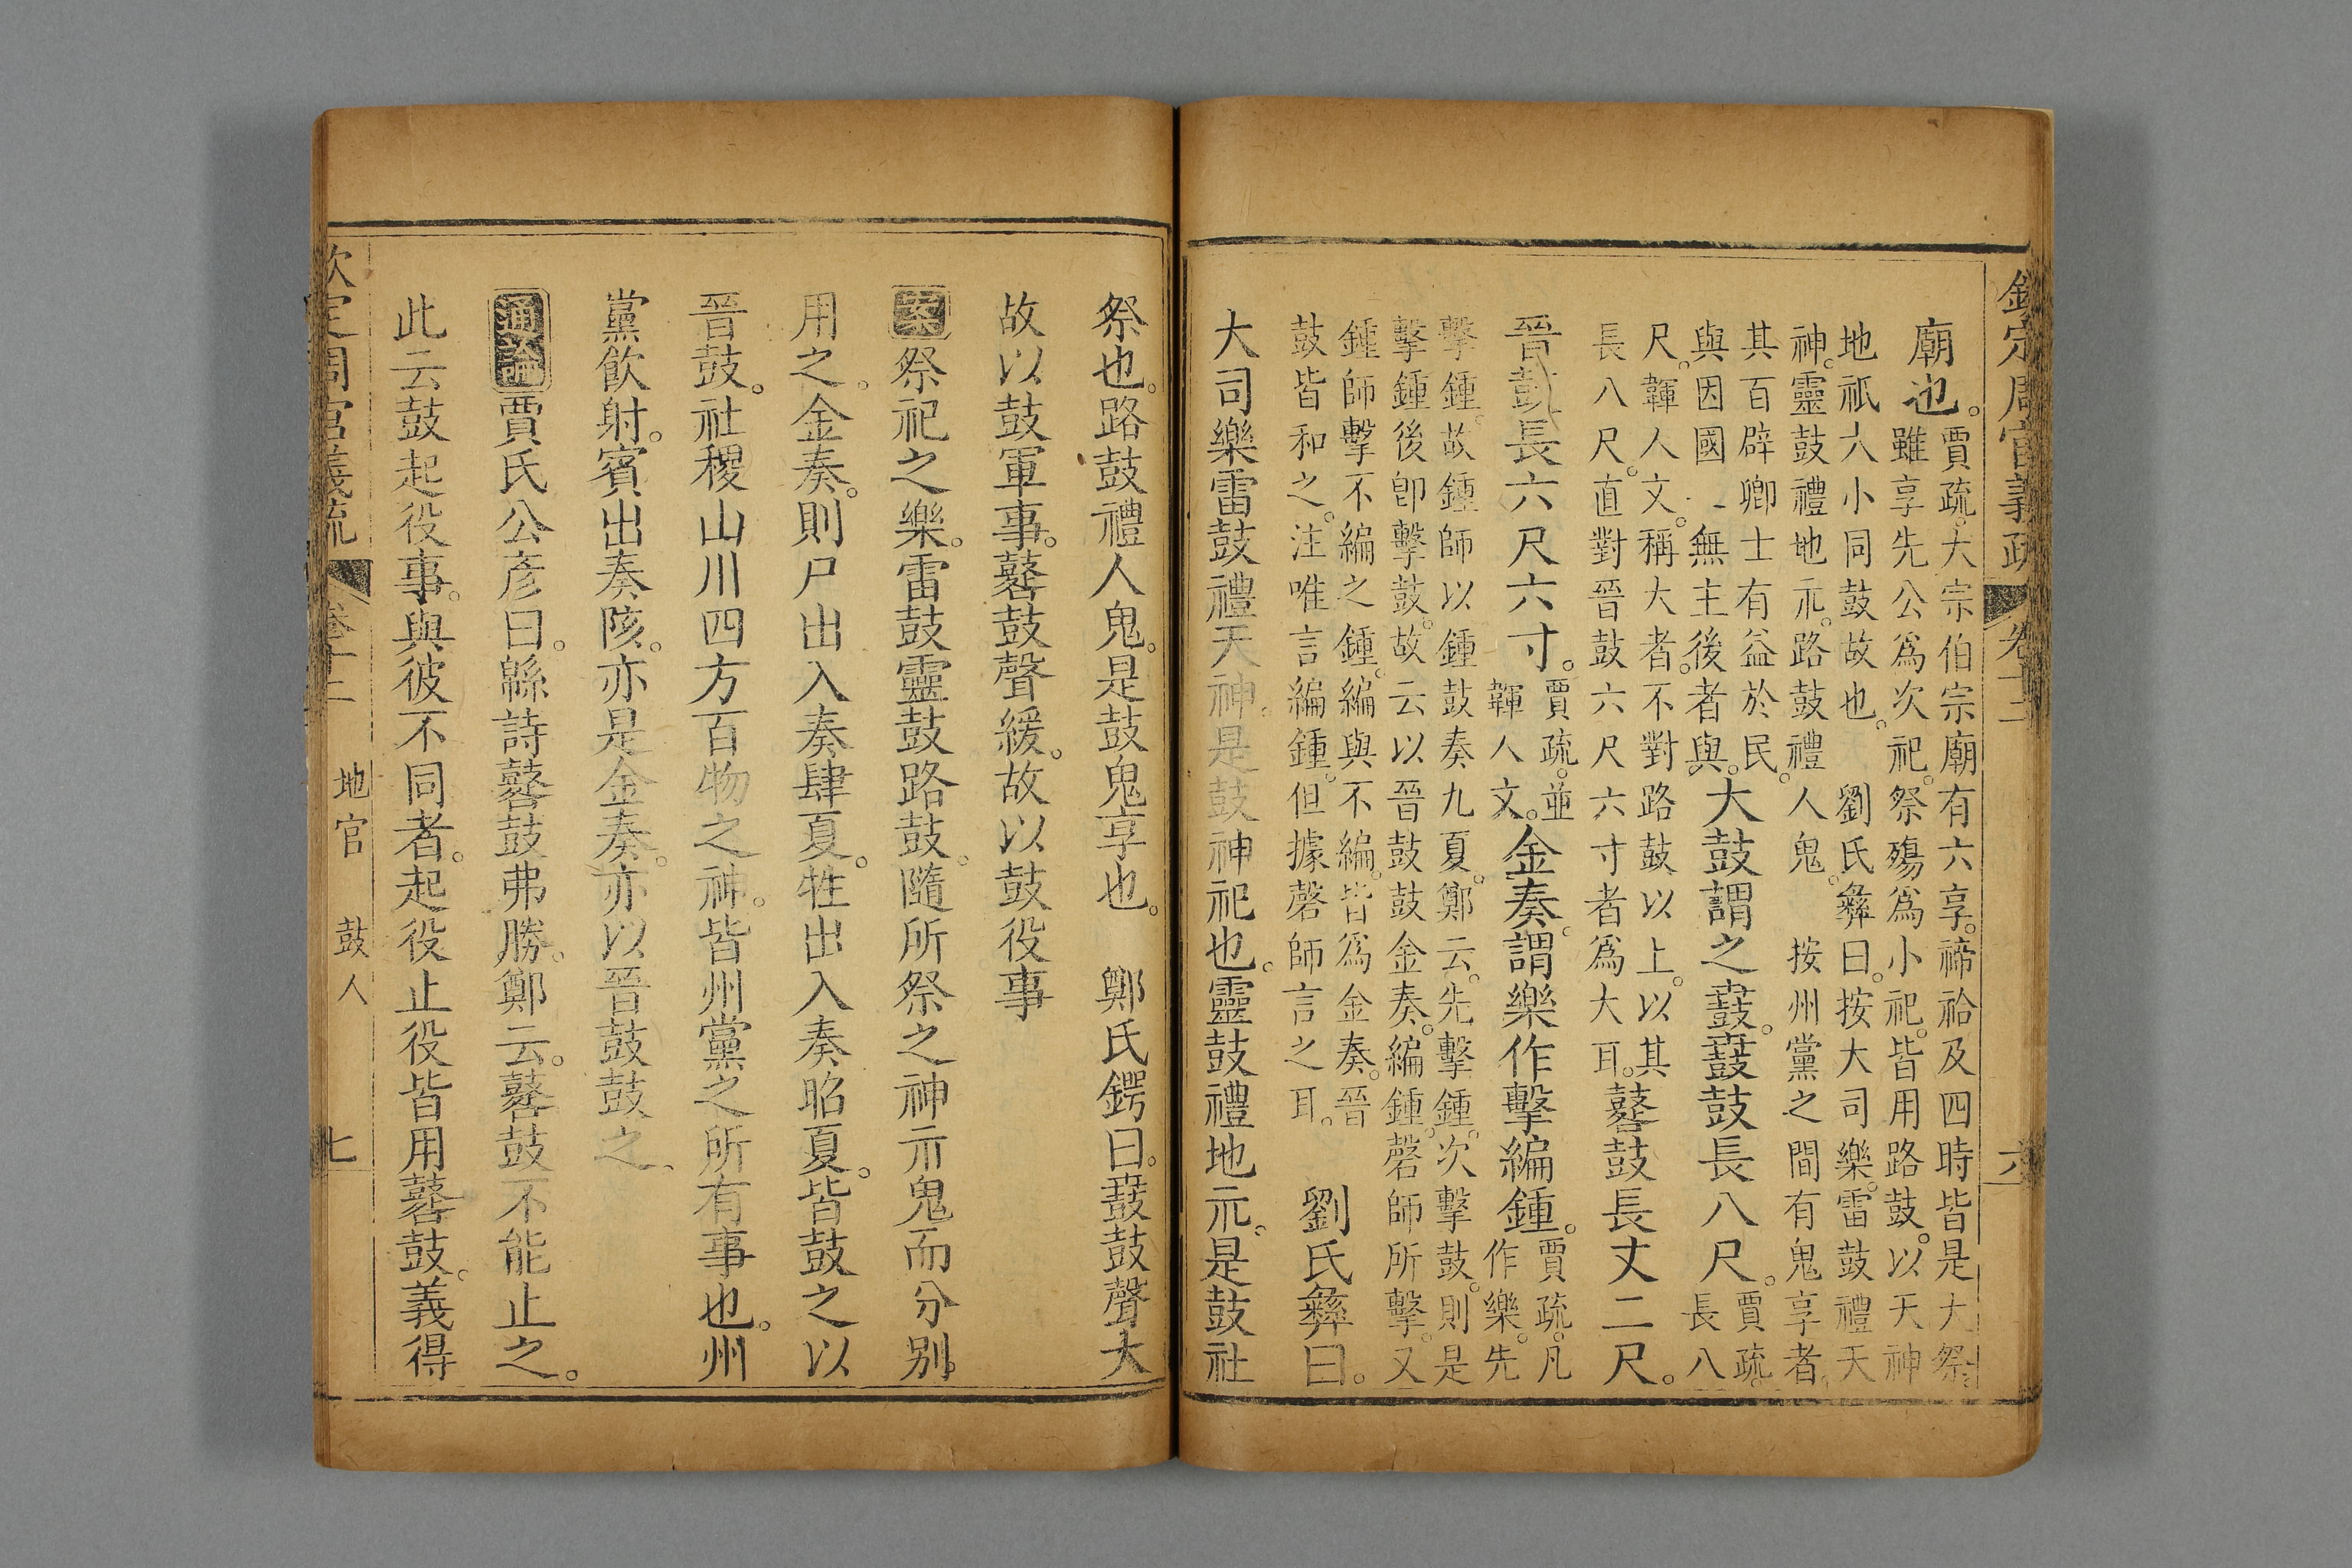 欽定周官義疏 卷十二 六
廟也。賈疏。大宗伯宗廟有六享。禘祫及四時皆是大祭。
雖享先公爲次祀。祭殤爲小祀。皆用路鼓。以天神
地祇大小同鼓故也。 劉氏彝曰。按大司樂。雷鼓禮天
神。靈鼓禮地示。路鼓禮人鬼。 按州黨之間有鬼享者。
其百辟卿士有益於民。
與因國、無主後者與。大鼓謂之鼖。鼖鼓長八尺。賈疏。
長八
尺。韗人文。稱大者。不對路鼓以上。以其
長八尺。直對晉鼓六尺六寸者爲大耳。鼛鼓長丈二尺。
晉鼓長六尺六寸。賈疏。並
韗人文。金奏。謂樂作擊編鍾。賈疏。凡
作樂。先
擊鍾。故鍾師以鍾鼓奏九夏。鄭云。先擊鍾。次擊鼓。則是
擊鍾後卽擊鼓。故云以晉鼓鼓金奏。編鍾。磬師所擊。又
鍾師擊不編之鍾。編與不編。皆爲金奏。晉
鼓皆和之。注唯言編鍾。但據磬師言之耳。 劉氏彝曰。
大司樂雷鼓禮天神。是鼓神祀也。靈鼓禮地示。是鼓社
祭也。路鼓禮人鬼。是鼓鬼享也。 鄭氏鍔曰。鼖鼓聲大
故以鼓軍事。鼛鼓聲緩。故以鼓役事
案祭祀之樂。雷鼓靈鼓路鼓。隨所祭之神示鬼而分別
用之。金奏。則尸出入奏肆夏。牲出入奏昭夏。皆鼓之以
晉鼓。社稷山川四方百物之神。皆州黨之所有事也。州
黨飲射。賓出奏陔。亦是金奏。亦以晉鼓鼓之。
通論賈氏公彥曰。緜詩鼛鼓弗勝。鄭云。鼛鼓不能止之。
此云鼓起役事。與彼不同者。起役止役皆用鼛鼓。義得
欽定周官義疏 卷十二 地官 鼓人 七